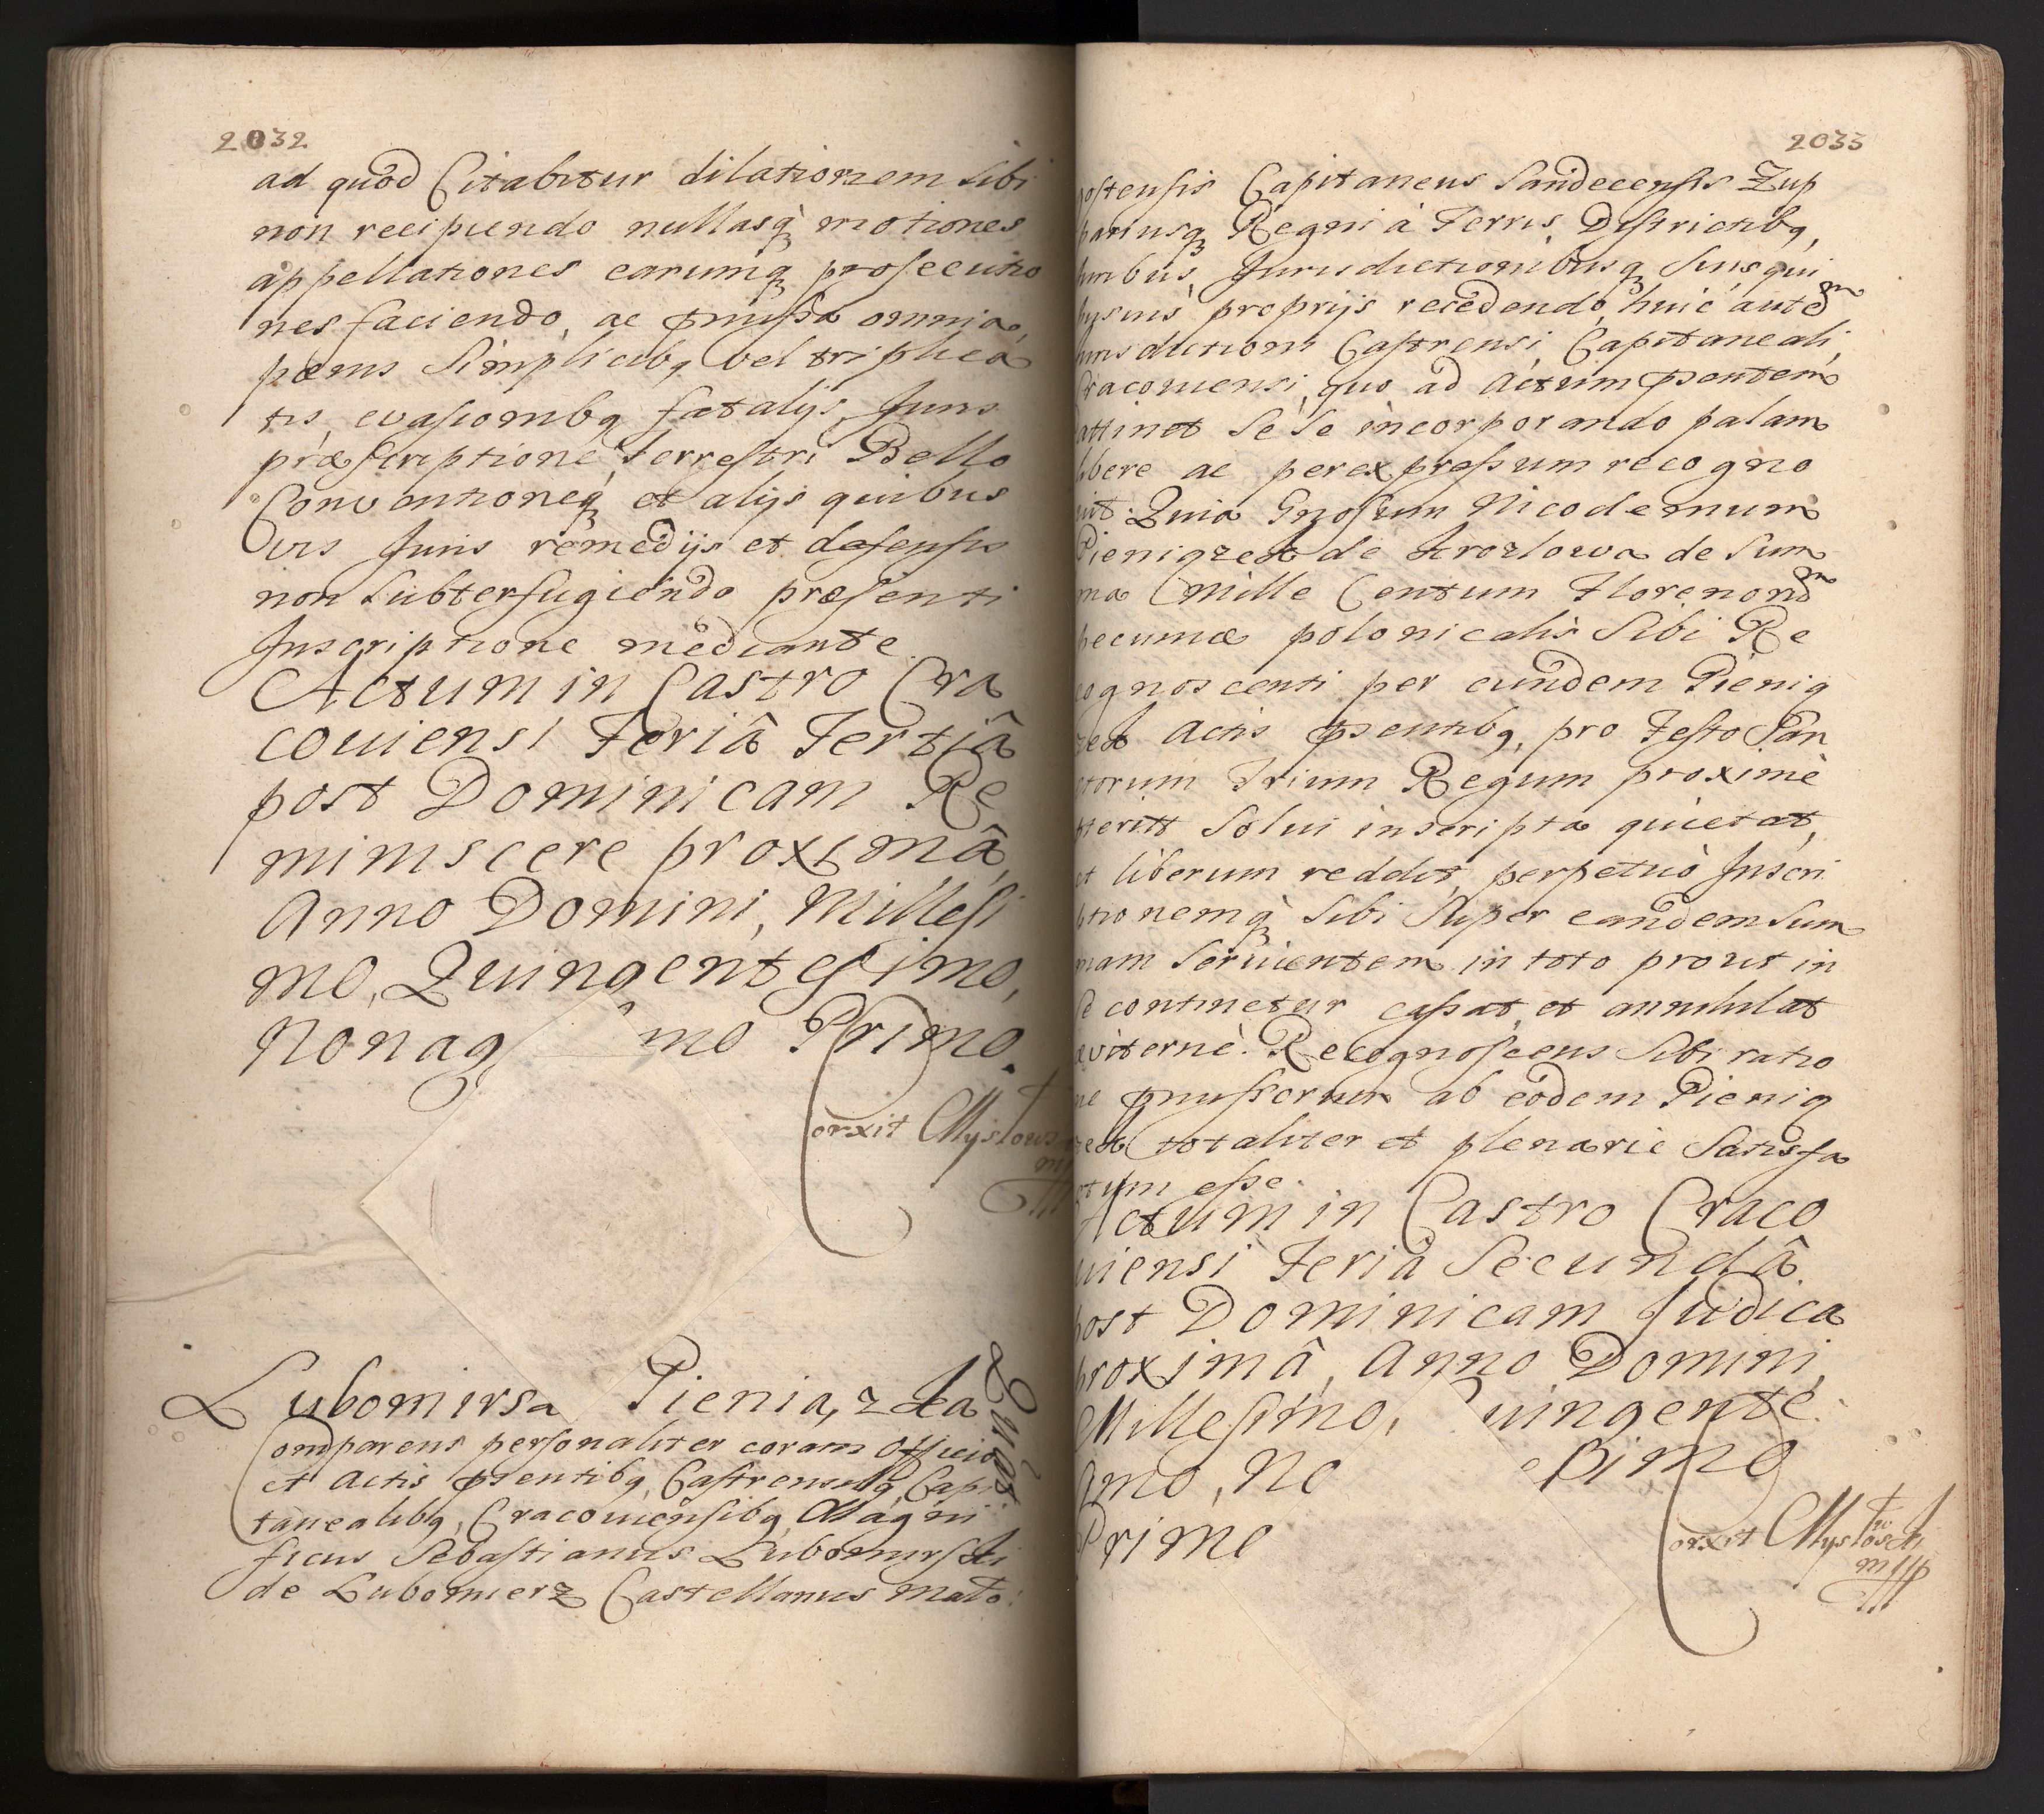 2032
ad quod Citabitur dilationem sibi
non recipiendo nullasq́ motiones
appellationes earumq́ prosecutio
nes faciendo, ac pmissa omnia
pœnis Simplicibq vel triplica
tis, evasionibq fatalijs Juris
præscriptione, Terrestri Bello
Conventioneq́ et alijs quibus
vis Juris remedijs et defensis
non subterfugiendo præsenti
Inscriptione mediante
Actum in Castro Cra
coviensi Feriâ Tertiâ
post Dominicam Re
miniscere proximâ
Anno Domini, Millesi
mo, Quingentesimo,
Nonag mo Primo.
Corxit Myslows
Lubomirsa Pienia̧zka
Quiet
Comparens personaliter coram Officio
et Actis psentibq, Castrensibq Capi
taneatibq, Cracoviensibq, Magni
ficus Sebastianus Lubomirski
de Lubomierz Castellanus Mało:
2033
gostensis Capitaneus Sandecensis Zup
pariusq́ Regni à Terris, Districtibq,
Juribus, Jurisdictionibusq́ suis qui
busuis proprijs recedendo, huic autem
Jurisdictioni Castrensi Capitaneali,
Cracoviensi, quo ad Actum psentem
attinet sese incorporando palam
libere ac per expressum recogno
uit. Quia Gnosum Nicodemum
Pieniązek de Krozlowa de Sum
ma Mille Centum Florenorum
pecuniæ polonicalis Sibi Re
cognoscenti per eundem Pienią
zek Actis psentibq, pro Festo San
ctorum Trium Regum proximè
pterito Solui inscripta quietat,
et liberum reddit, perpetuò Inscri
ptionemq́ sibi super eandem sum
mam servientem in toto prout in
se continetur cassat, et annihilat
æviternè. Recognoscens Sibi ratio
ne pmissorum ab eodem Pienią
zek totaliter et plenarie Satisfa
ctum esse.
Actum in Castro Craco
viensi Feriâ Secundâ
post Dominicam Judica
proximâ, Anno Domini,
Millesimo, uingente
simo, No esimo
Primo
Corxit Mysłowski
mpp